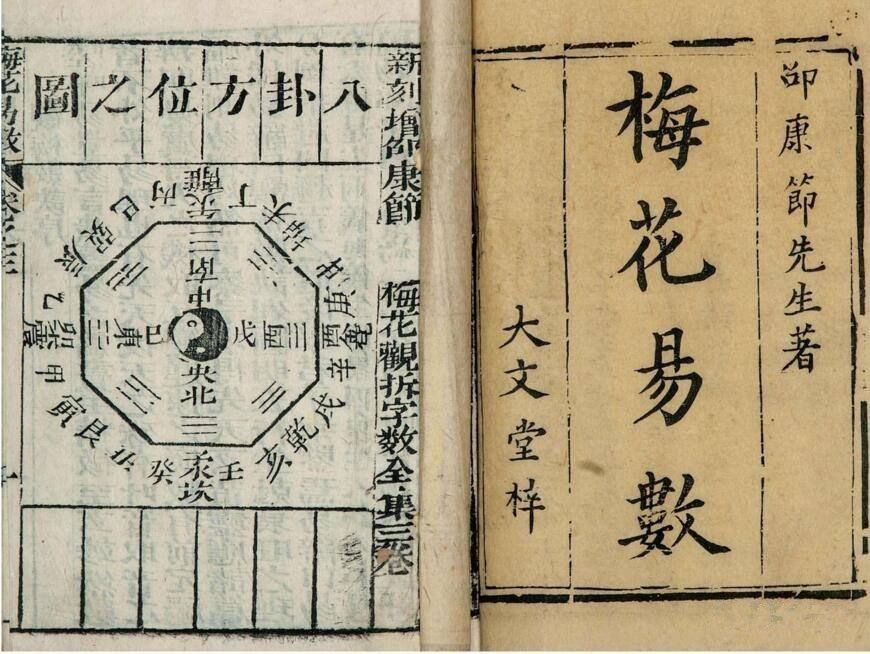 邵康節先生著
梅花易數
大文堂梓
新刻增邵康節 梅花觀拆字數全集三卷
八卦方位之圖
丙 午離 丁
未坤申
庚 酉兌 辛
戌乾亥
壬 子坎 癸
丑艮寅
甲 卯震 乙
辰巽巳
南 中
東 己 戊 西
央 北
梅花易數 卷之三